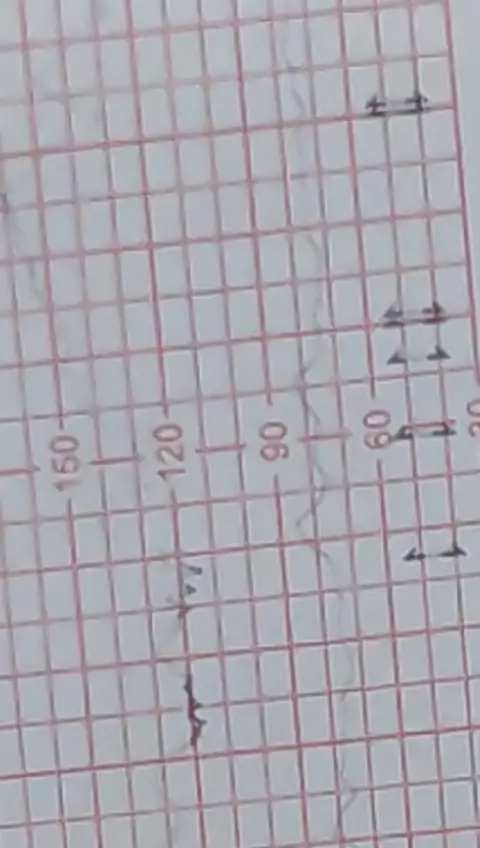 150 120 90 60